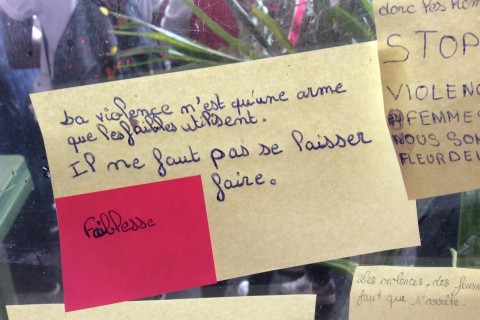 La violence n'est qu'une arme
que les faibles utilisent.
Il ne faut pas se laisser
faire.
Faiblesse
donc les
STOP
VIOLENC
FEMMES
NOUS SON
FLEUR DE
Les violences des femm
faut que s'arrête.